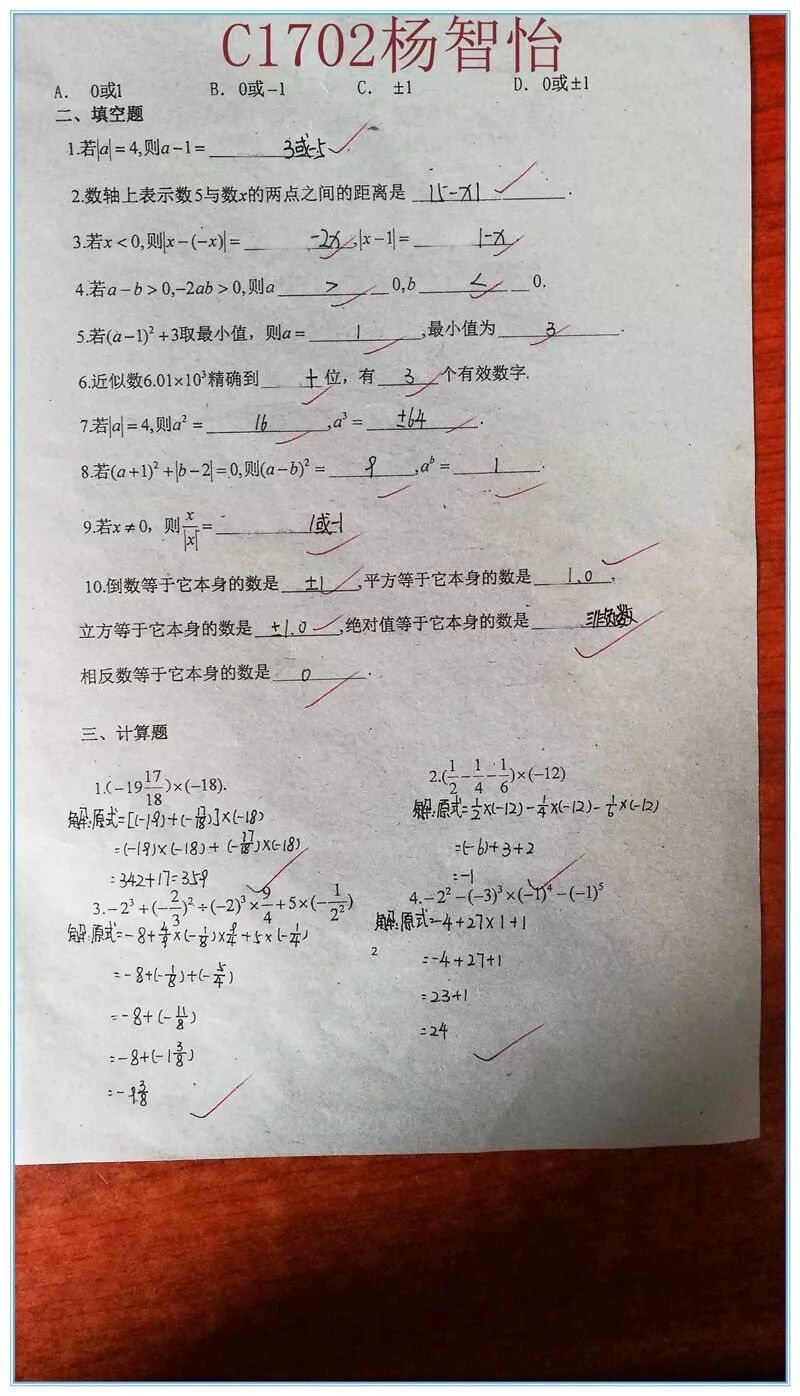 C1702杨智怡
A. 0或1 B. 0或-1 C. ±1 D. 0或±1
二、填空题
1.若|a|=4,则a-1= 3或-5 .
2.数轴上表示数5与数x的两点之间的距离是 |5-x| .
3.若x<0,则|x-(-x)|= -2x ,|x-1|= 1-x
4.若a-b>0,-2ab>0,则a > 0,b < 0.
5.若(a-1)²+3取最小值，则a= 1 ,最小值为 3 .
6.近似数6.01×10³精确到 十 位，有 3 个有效数字.
7.若|a|=4,则a²= 16 ,a³= ±64 .
8.若(a+1)²+|b-2|=0,则(a-b)²= 9 ,aᵇ= 1 .
9.若x≠0，则x/|x|= 1或-1
10.倒数等于它本身的数是 ±1 ,平方等于它本身的数是 1.0 ,
立方等于它本身的数是 ±1.0 ,绝对值等于它本身的数是 非负数
相反数等于它本身的数是 0 .
三、计算题
1.(-19 17/18)×(-18). 2.(1/2-1/4-1/6)×(-12)
解:原式=[(-19)+(-17/18)]×(-18) 解:原式=1/2×(-12)-1/4×(-12)-1/6×(-12)
=(-19)×(-18)+(-17/18)×(-18) =(-6)+3+2
=342+17=359 =-1
3.-2³+(-2/3)²÷(-2)³×9/4+5×(-1/2²) 4.-2²-(-3)³×(-1)⁴-(-1)⁵
解:原式=-8+4/9×(-1/8)×9/4+5×(-1/4) 解:原式=-4+27×1+1
2
=-8+(-1/8)+(-5/4) =-4+27+1
=-8+(-11/8) =23+1
=-8+(-1 3/8) =24
=-9 3/8